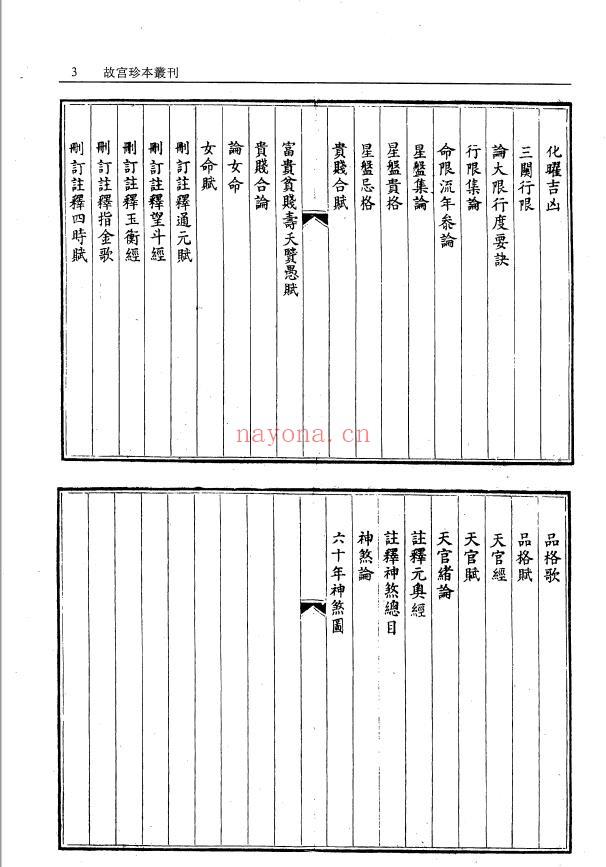 3 故宫珍本叢刊
化曜吉凶
三關行限
論大限行度要訣
行限集論
命限流年叅論
星盤集論
星盤貴格
星盤忌格
貴賤合賦
富貴貧賤壽夭賢愚賦
貴賤合論
論女命
女命賦
刪訂註釋通元賦
刪訂註釋望斗經
刪訂註釋玉衡經
刪訂註釋指金歌
刪訂註釋四時賦
nayona.cn
品格歌
品格賦
天官經
天官賦
天官緒論
註釋元奧經
註釋神煞總目
神煞論
六十年神煞圖